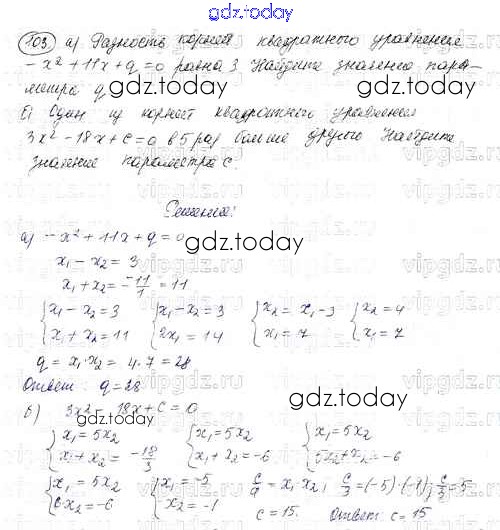 gdz.today
103. а) Разность корней квадратного уравнения
-x² + 11x + q = 0 равна 3. Найдите значение пара-
метра q
gdz.today
б) Один из корней квадратного уравнения
3x² - 18x + c = 0 в 5 раз больше другого. Найдите
значение параметра c.
Решение:
а) -x² + 11x + q = 0
gdz.today
x₁ - x₂ = 3
x₁ + x₂ = -11/1 = 11
{x₁ - x₂ = 3 {x₁ - x₂ = 3 {x₂ = x₁ - 3 {x₂ = 4
x₁ + x₂ = 11 2x₁ = 14 x₁ = 7 x₁ = 7
q = x₁ · x₂ = 4 · 7 = 28
Ответ: q = 28
gdz.today
б) 3x² - 18x + c = 0
gdz.today
{x₁ = 5x₂ {x₁ = 5x₂ {x₁ = 5x₂
x₁ + x₂ = -18/3 x₁ + x₂ = -6 5x₂ + x₂ = -6
{x₁ = 5x₂ {x₁ = -5 c/a = x₁x₂; c/3 = (-5) · (-1); c/3 = 5
6x₂ = -6 x₂ = -1 c = 15. Ответ: c = 15
gdz.today
vipgdz.ru